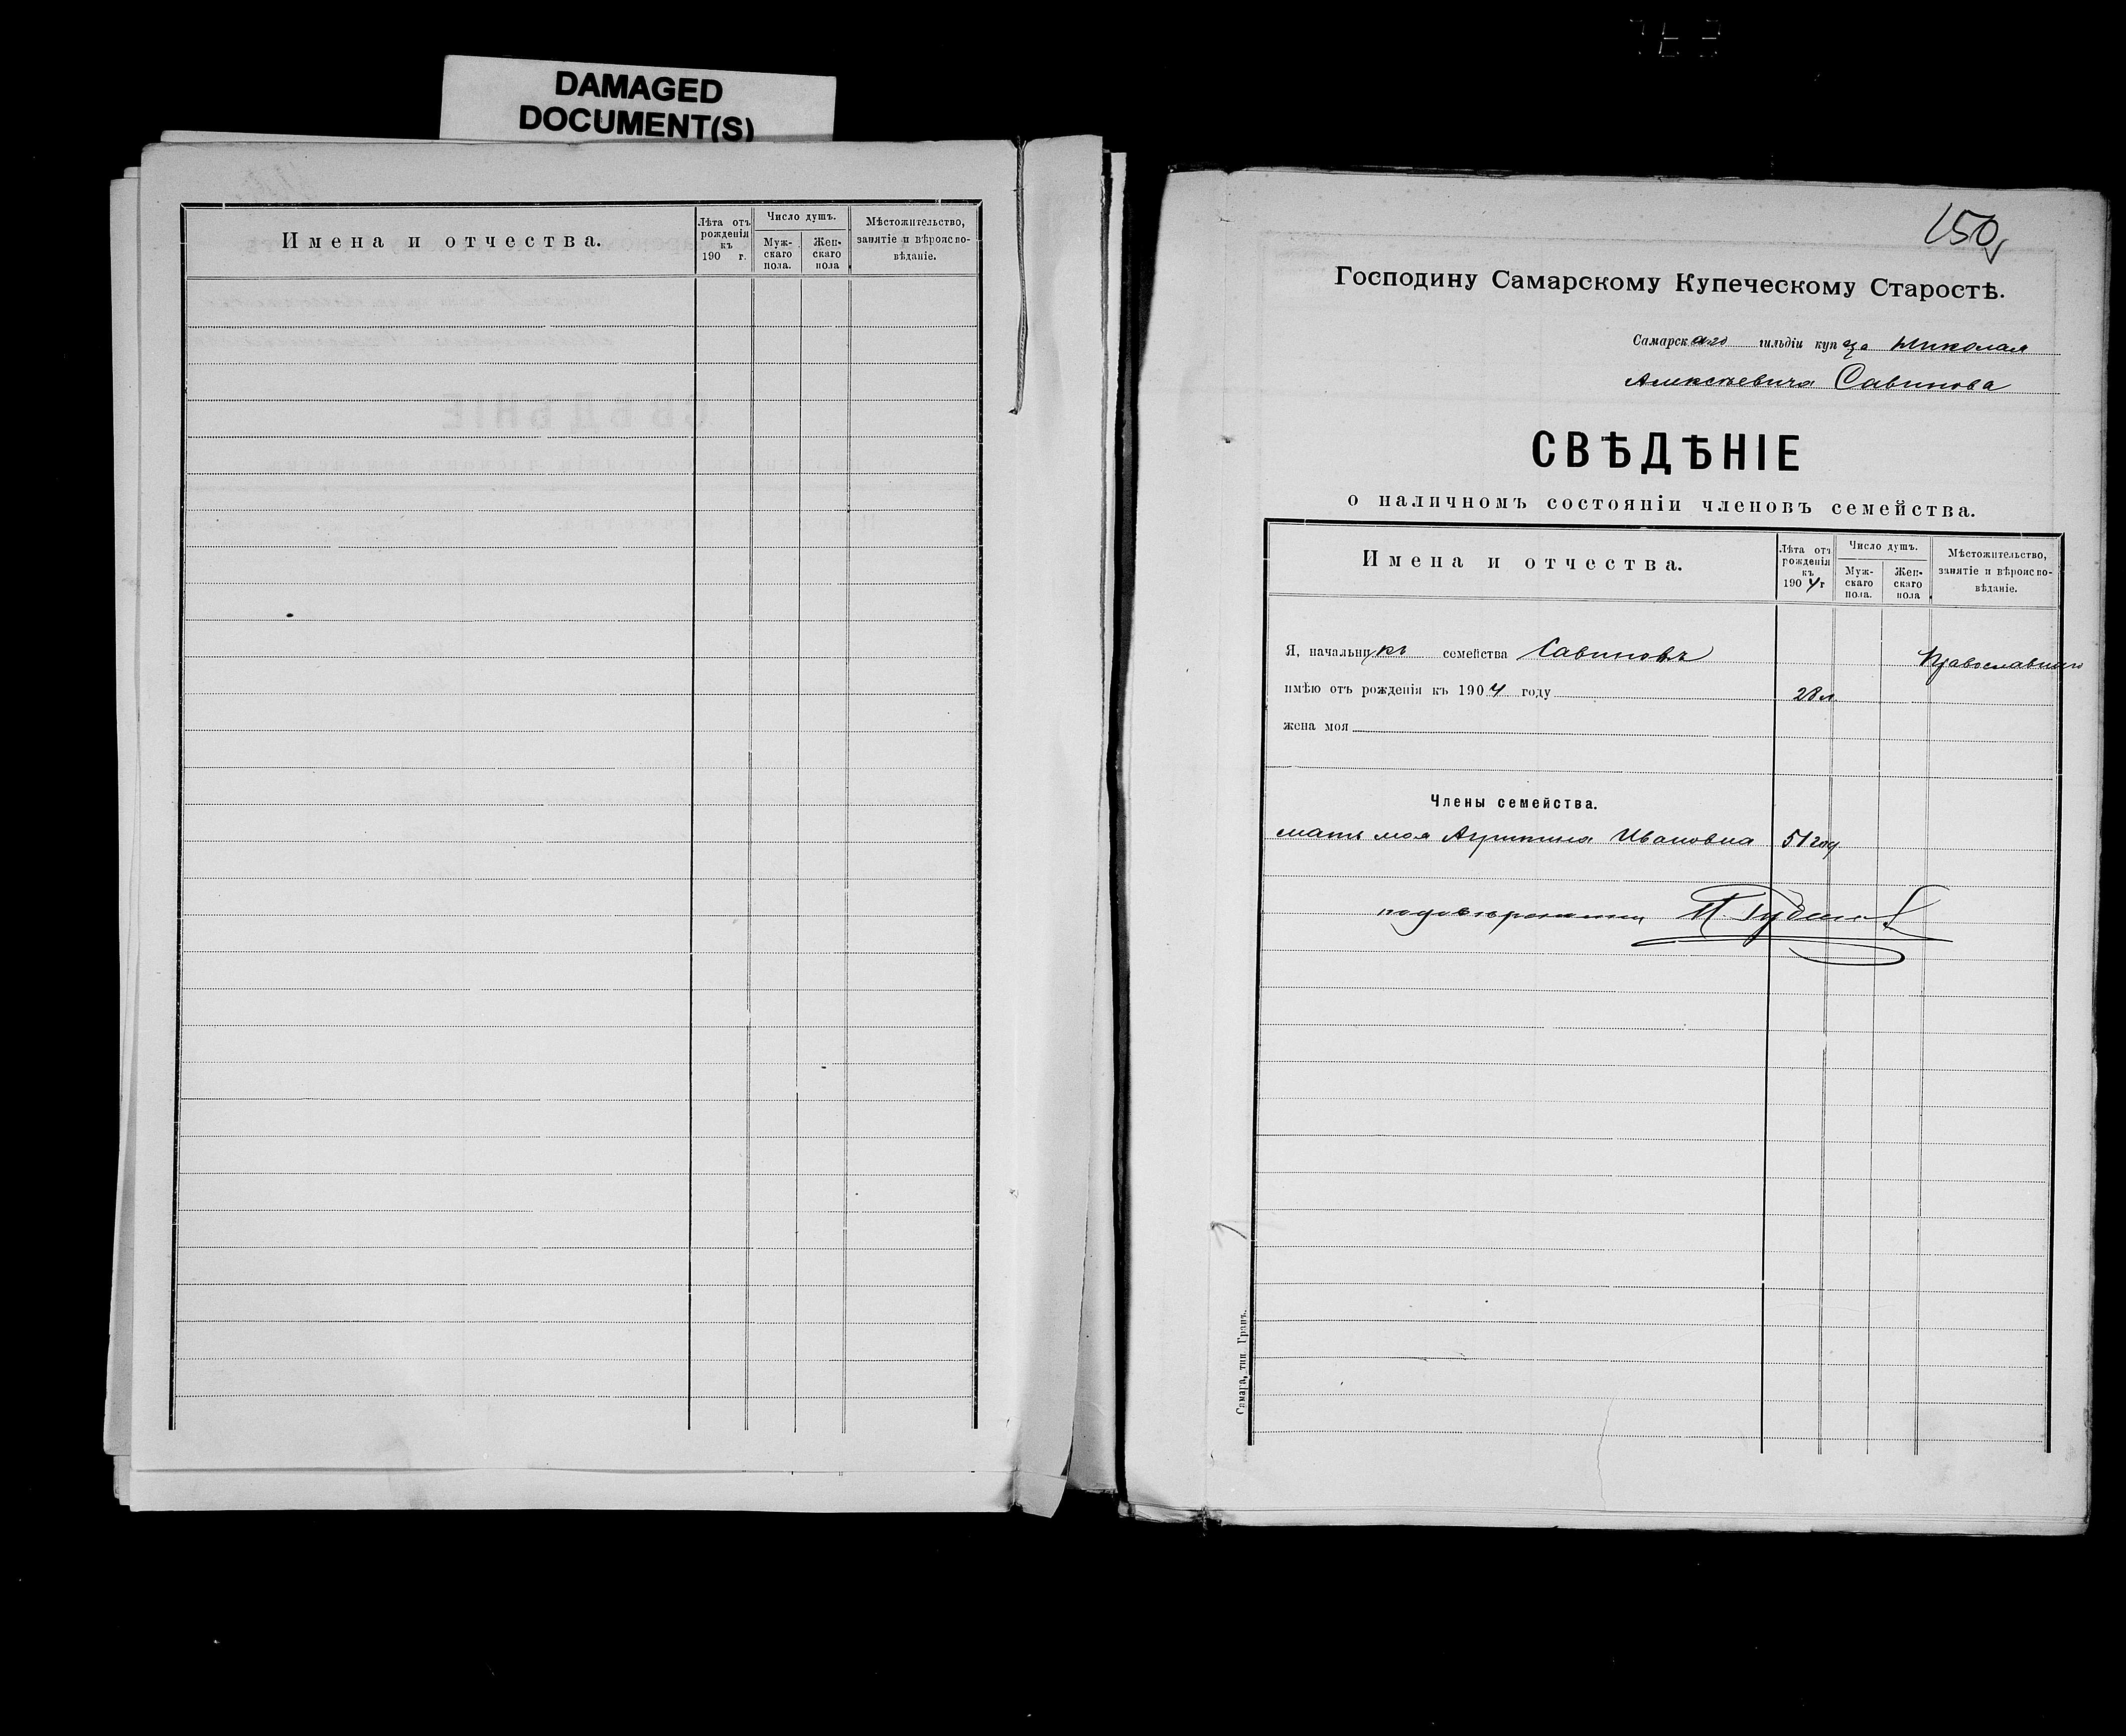 DAMAGED
DOCUMENT(S)
Имена и отчества.
Лѣта отъ рожденія къ 190 г.
Число душъ.
Мужскаго пола.
Женскаго пола
Мѣстожительство, занятіе и вѣроисповѣданіе.
150
Господину Самарскому Купеческому Старостѣ.
Самарскаго гильдіи купца Николая
Алексѣевича Савинова
СВѢДѢНІЕ
о наличномъ состояніи членовъ семейства.
Имена и отчества.
Лѣта отъ рожденія къ 1904 г
Число душъ.
Мужскаго пола.
Женскаго пола
Мѣстожительство, занятіе и вѣроисповѣданіе.
Я, начальникъ семейства Савиновъ Православнаго
имѣю отъ рожденія къ 1904 году 28 л
жена моя
Члены семейства.
мать моя Ивановна 51 год
Самара, тип. Гранъ.